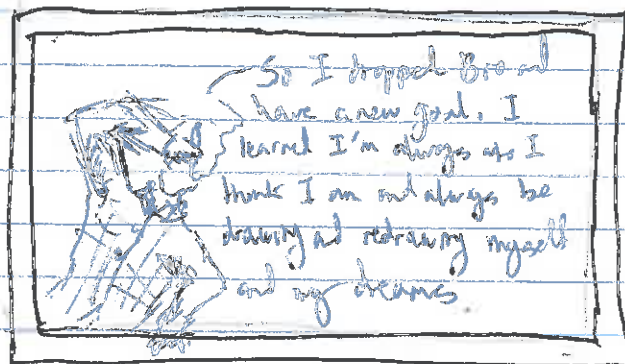 So I dropped Bro and
have a new goal. I
learned I'm always who I
think I am and always be
drawing and redrawing myself
and my dreams